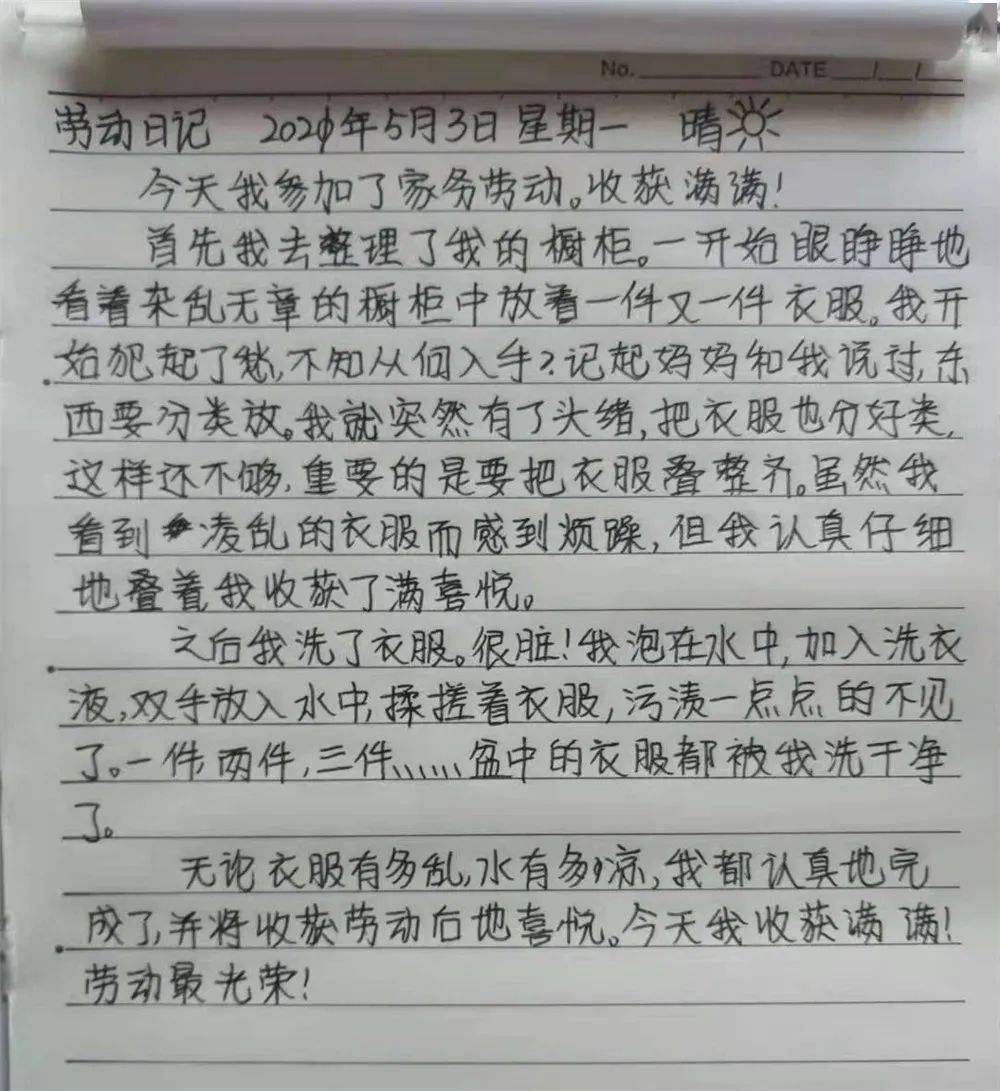 No. DATE / /
劳动日记 2021年5月3日 星期一 晴
今天我参加了家务劳动。收获满满！
首先我去整理了我的橱柜。一开始眼睁睁地
看着杂乱无章的橱柜中放着一件又一件衣服。我开
始犯起了愁，不知从何入手？记起妈妈和我说过，东
西要分类放。我就突然有了头绪，把衣服也分好类，
这样还不够，重要的是要把衣服叠整齐。虽然我
看到凌乱的衣服而感到烦躁，但我认真仔细
地叠着，我收获了满喜悦。
之后我洗了衣服。很脏！我泡在水中，加入洗衣
液，双手放入水中，揉搓着衣服，污渍一点点的不见
了。一件，两件，三件、、、、、、盆中的衣服都被我洗干净
了。
无论衣服有多乱，水有多凉，我都认真地完
成了，并将收获劳动后地喜悦。今天我收获满满！
劳动最光荣！